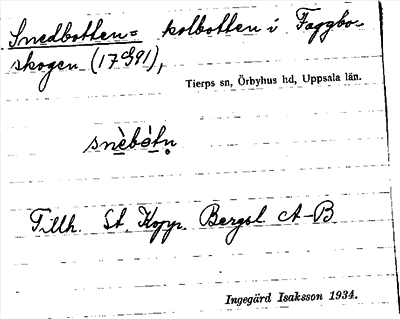 Snedbotten = kolbotten i Faggbo-
skogen (17991),
Tierps sn, Örbyhus hd, Uppsala län.
snὲbótn̥
Tillh. St. Kopp. Bergsl. A-B
Ingegärd Isaksson 1934.